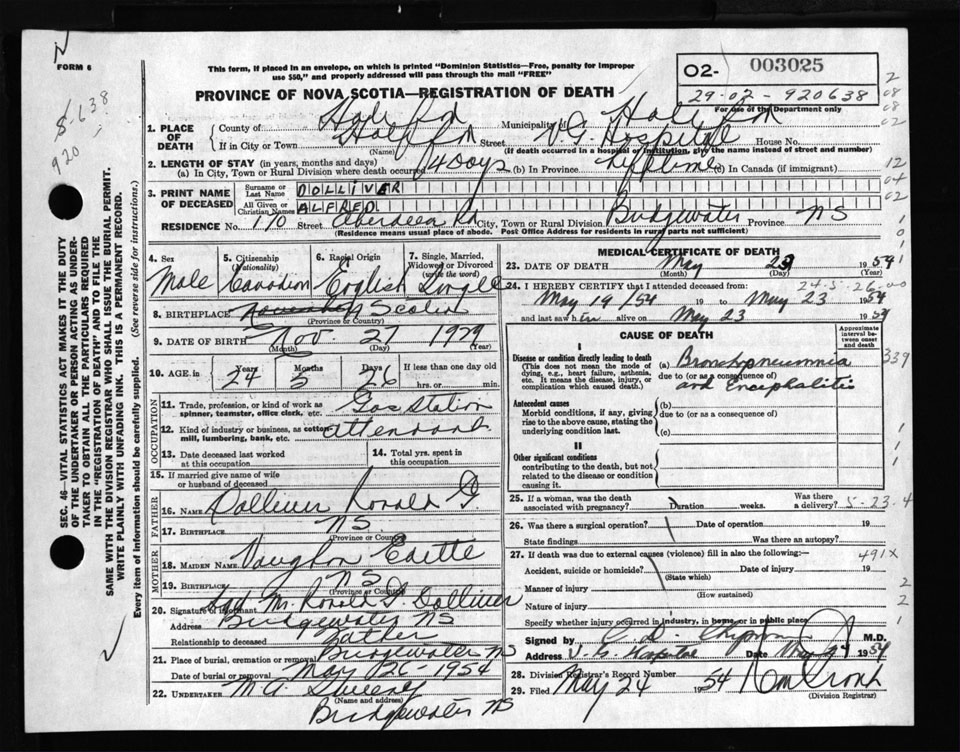 FORM 6
This form, if placed in an envelope, on which is printed "Dominion Statistics—Free, penalty for improper
use $50," and properly addressed will pass through the mail "FREE"
PROVINCE OF NOVA SCOTIA—REGISTRATION OF DEATH
02- 003025
29-02-920638
For use of the Department only
S-638
920
SEC. 46—VITAL STATISTICS ACT MAKES IT THE DUTY
OF THE UNDERTAKER OR PERSON ACTING AS UNDER-
TAKER TO OBTAIN ALL THE PARTICULARS REQUIRED
IN THE "REGISTRATION OF DEATH" AND TO FILE THE
SAME WITH THE DIVISION REGISTRAR WHO SHALL ISSUE THE BURIAL PERMIT.
WRITE PLAINLY WITH UNFADING INK. THIS IS A PERMANENT RECORD.
Every item of information should be carefully supplied. (See reverse side for instructions.)
1. PLACE OF DEATH
County of Halifax Municipality of Halifax
If in City or Town Halifax (Name) Street V G Hospital House No.
(If death occurred in a hospital or institution, give the name instead of street and number)
2. LENGTH OF STAY (in years, months and days)
(a) In City, Town or Rural Division where death occurred 4 days (b) In Province Lifetime (c) In Canada (if immigrant)
3. PRINT NAME OF DECEASED
Surname or Last Name DOLLIVER
All Given or Christian Names ALFRED
RESIDENCE No. 170 Street Aberdeen Rd City, Town or Rural Division Bridgewater Province NS
(Residence means usual place of abode. Post Office Address for residents in rural parts not sufficient)
4. Sex Male
5. Citizenship (Nationality) Canadian
6. Racial Origin English
7. Single, Married, Widowed or Divorced (write the word) Single
8. BIRTHPLACE N Scotia
(Province or Country)
9. DATE OF BIRTH Nov. 27 1929
(Month) (Day) (Year)
10. AGE in Years Months Days If less than one day old
24 5 26 hrs. or min.
OCCUPATION
11. Trade, profession, or kind of work as
spinner, teamster, office clerk, etc. Gas Station
12. Kind of industry or business, as cotton
mill, lumbering, bank, etc. attendant
13. Date deceased last worked
at this occupation
14. Total yrs. spent in
this occupation
15. If married give name of wife
or husband of deceased
FATHER
16. NAME Dolliver Ronald G
17. BIRTHPLACE NS
(Province or Country)
MOTHER
18. MAIDEN NAME Vaughn
19. BIRTHPLACE NS
(Province or Country)
20. Signature of informant Sgd Mr. Ronald G. Dolliver
Address Bridgewater NS
Relationship to deceased Father
21. Place of burial, cremation or removal Bridgewater NS
Date of burial or removal May 26 1954
22. UNDERTAKER M A Sweeney
(Name and address)
Bridgewater NS
MEDICAL CERTIFICATE OF DEATH
23. DATE OF DEATH May 23 1954
(Month) (Day) (Year)
24-5-26-00
24. I HEREBY CERTIFY that I attended deceased from:
May 19/54 19 to May 23 1954
and last saw him alive on May 23 1954
CAUSE OF DEATH
Approximate interval between onset and death
I
Disease or condition directly leading to death
(This does not mean the mode of
dying, e.g., heart failure, asthenia,
etc. It means the disease, injury, or
complication which caused death.)
(a) Bronchopneumonia 339
due to (or as a consequence of)
and Encephalitis
Antecedent causes
Morbid conditions, if any, giving
rise to the above cause, stating the
underlying condition last.
(b)
due to (or as a consequence of)
(c)
II
Other significant conditions
contributing to the death, but not
related to the disease or condition
causing it.
25. If a woman, was the death
associated with pregnancy? Duration weeks. Was there
a delivery? 5-23-4
26. Was there a surgical operation? Date of operation 19
State findings Was there an autopsy?
27. If death was due to external causes (violence) fill in also the following:— 491X
Accident, suicide or homicide? Date of injury 19
(State which)
Manner of injury
(How sustained)
Nature of injury
Specify whether injury occurred in industry, in home, or in public place
Signed by C. D. M.D.
Address V. G. Hospital Date May 1954
28. Division Registrar's Record Number
29. Filed May 24 1954
(Division Registrar)